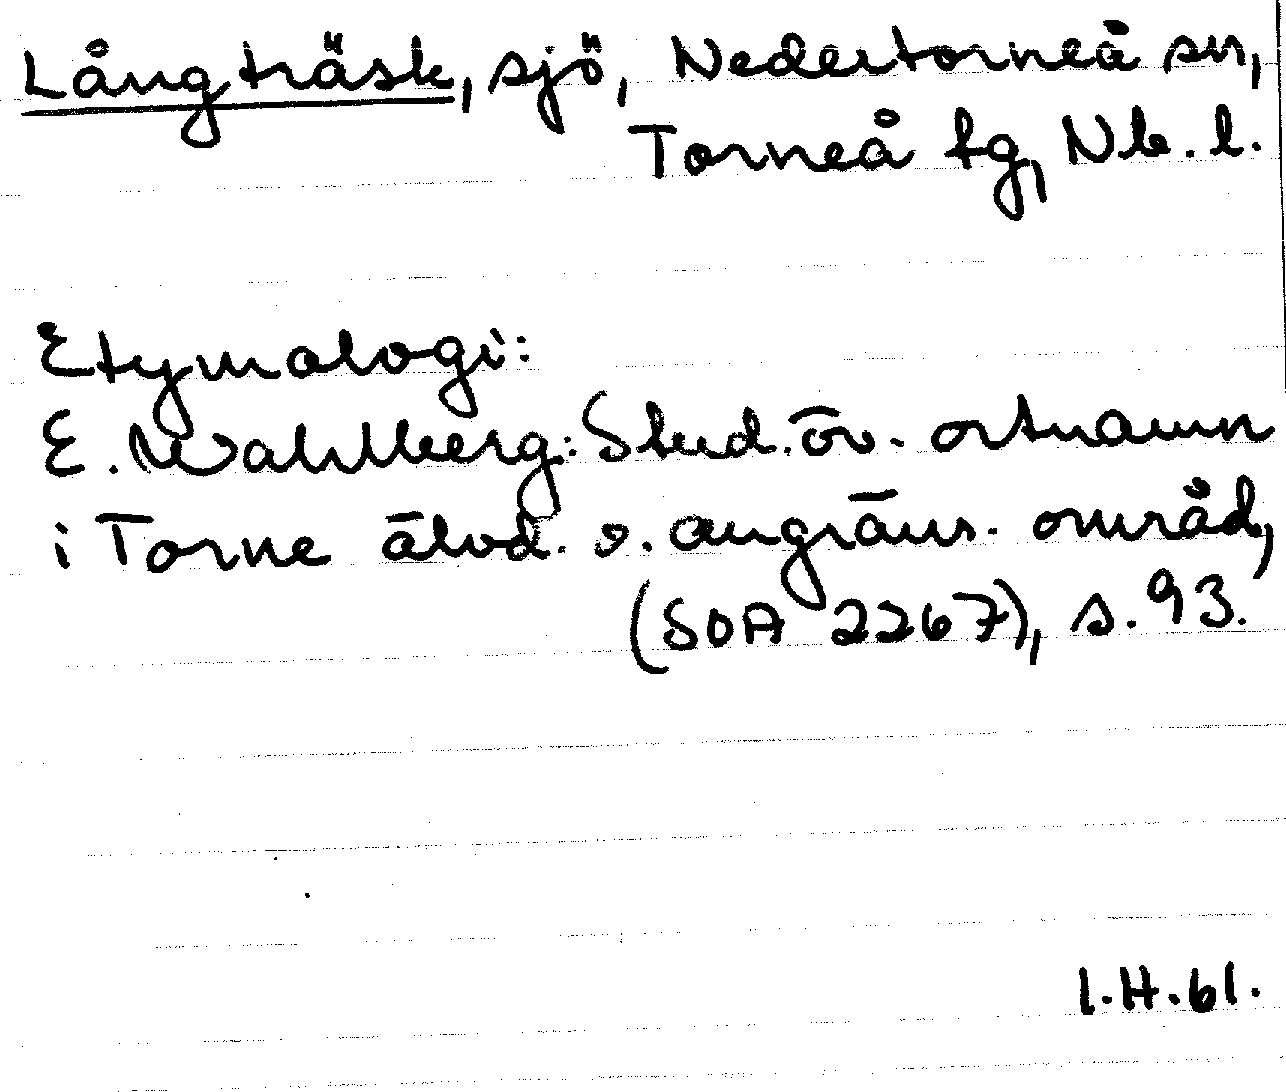 Långträsk, sjö, Nedertorneå sn,
Torneå tg, Nb. l.
Etymologi:
E. Wahlberg: Stud. öv. ortnamn
i Torne älvd. o. angräns. områd,
(SOA 2267), s. 93.
I.H.61.